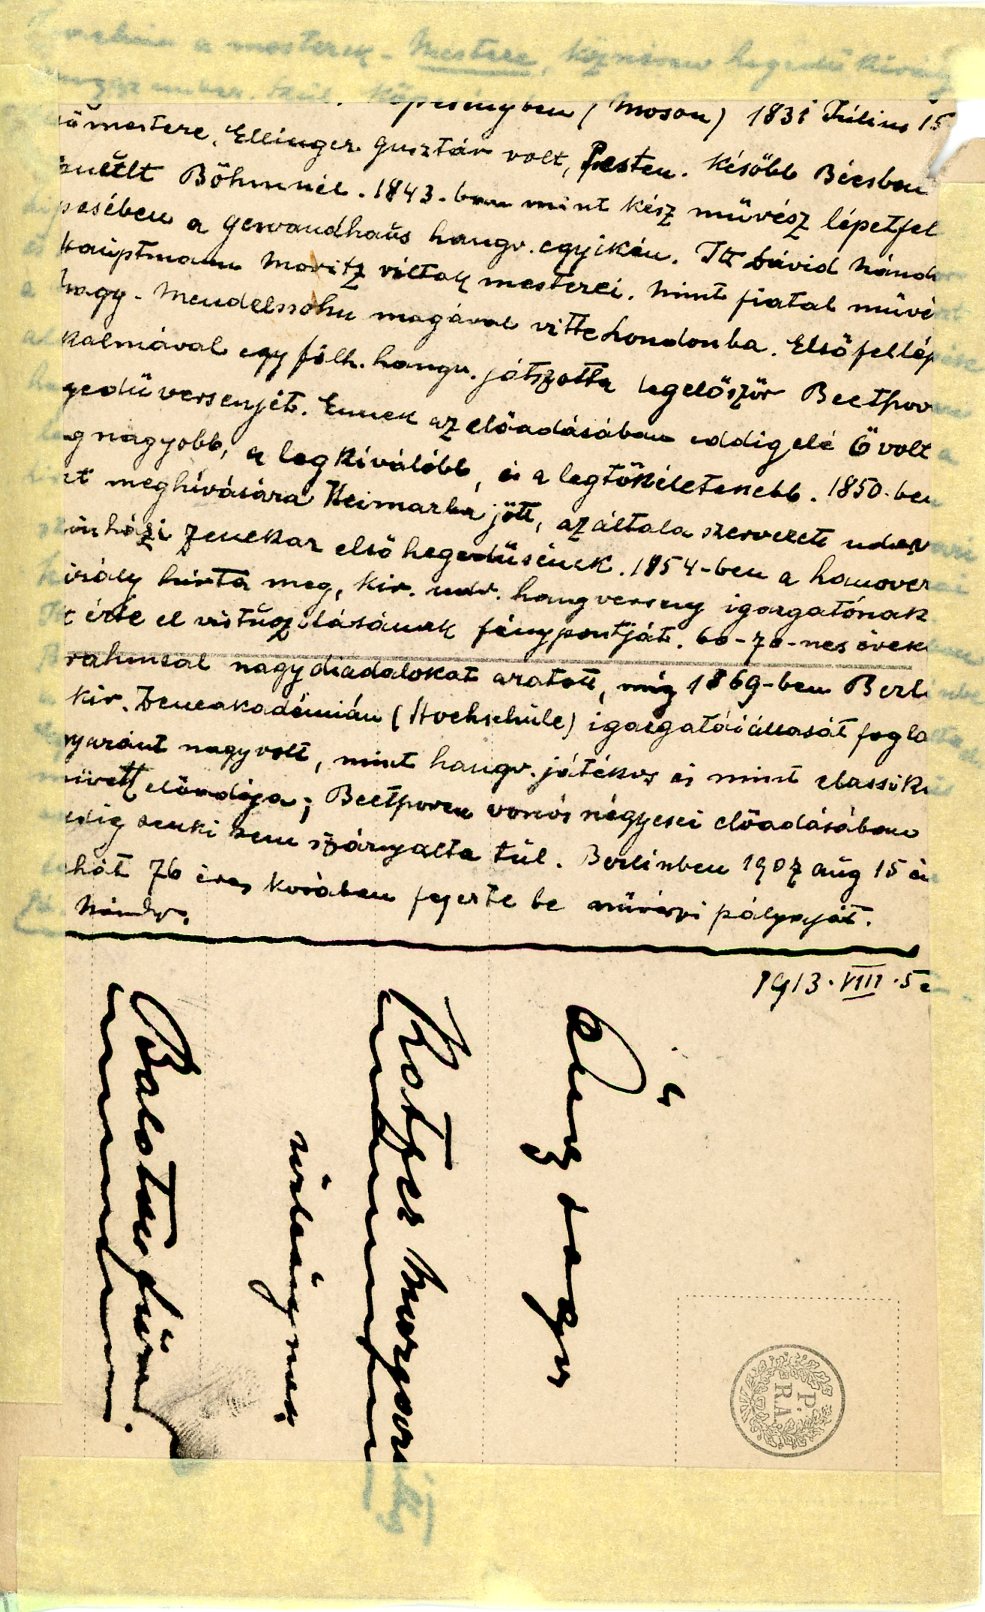 a mesterek - Mestere, köznéven hegedű király
Köpcsényben (Moson) 1831 Július 15
mestere, Ellinger Gusztáv volt, Pesten. Később Bécsben
Böhmnél. 1843.-ban mint kész művész lépett fel
a gewandhaus hangv. egyikén. Itt Dávid Nándor
Hauptmann Moritz voltak mesterei. Mint fiatal művé
nagy. Mendelssohn magával vitte Londonba. Első fellépése
kalmával egy filh. hangv. játszotta legelőször Beethoven
gedűversenyét. Ennek az előadásában eddigelé Ő volt a
legnagyobb, a legkiválóbb, és a legtökéletesebb. 1850.-ben
meghívására Weimarba jött, az általa szervezett udvari
színházi zenekar első hegedűsének. 1854-ben a hanoveri
király hívta meg, kir. udv. hangverseny igazgatónak
Itt érte el virtuozitásának fénypontját. 60-70-nes évek
Brahmsal nagy diadalokat aratott, míg 1869-ben Berlinbe
kir. Zeneakadémián (Hochschule) igazgatói állását fogla
nagy volt, mint hangv. játékos és mint classikus
művek előadója; Beethoven vonós négyesei előadásában
eddig senki sem szárnyalta túl. Berlinben 1907 aug 15 én
tehát 76 éves korában fejezte be művészi pályáját.
Nándor.
1913. VIII. 5 én.
Nagys.
Kotfer Margari
úrleánynak
Balatonfüred.
P.
R.A.